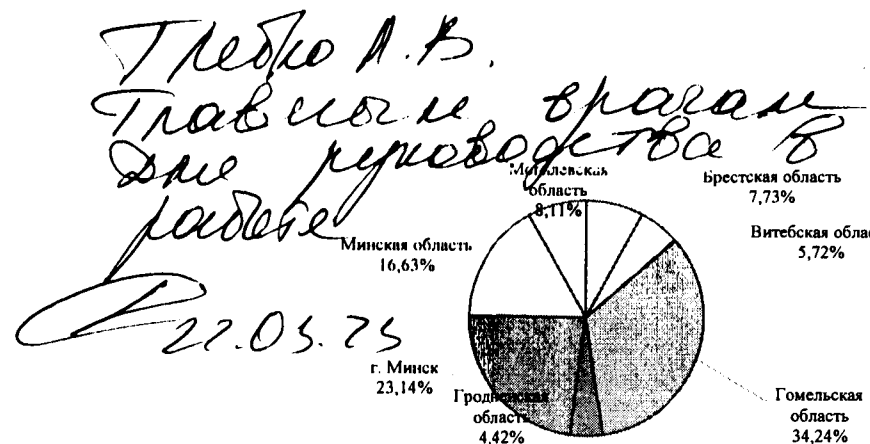 Гледко А.В.
Главным врачам
для руководства в
работе
22.03.23
Могилевская
область
8,11%
Брестская область
7,73%
Витебская облас
5,72%
Минская область
16,63%
г. Минск
23,14%
Гродненская
область
4,42%
Гомельская
область
34,24%